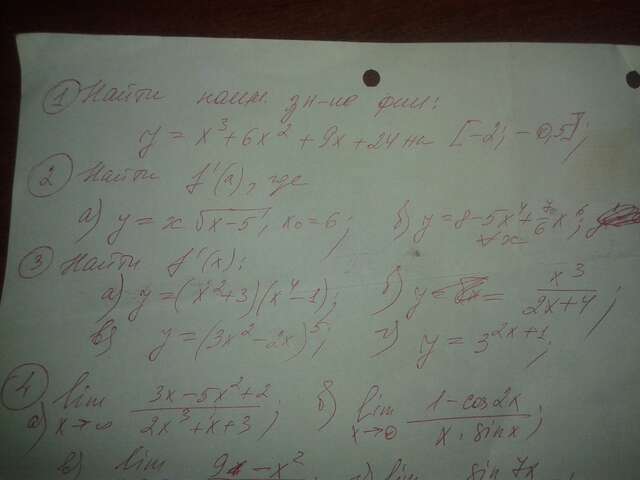 ① Найти наим. зн-ие фии:
y = x³+6x²+9x+24 на [-2; -0,5];
② Найти f'(a), где
а) y = x√(x-5), x₀=6; б) y=8-5x⁴+
③ Найти f'(x):
а) y=(x²+3)(x⁴-1); б) y= x³/(2x+4);
в) y=(3x²-2x)⁵; г) y=3^(2x+1);
④ а) lim x→∞ (3x-5x²+2)/(2x³+x+3); б) lim x→0 (1-cos2x)/(x·sinx);
в) lim 9x-x² г) lim sin7x